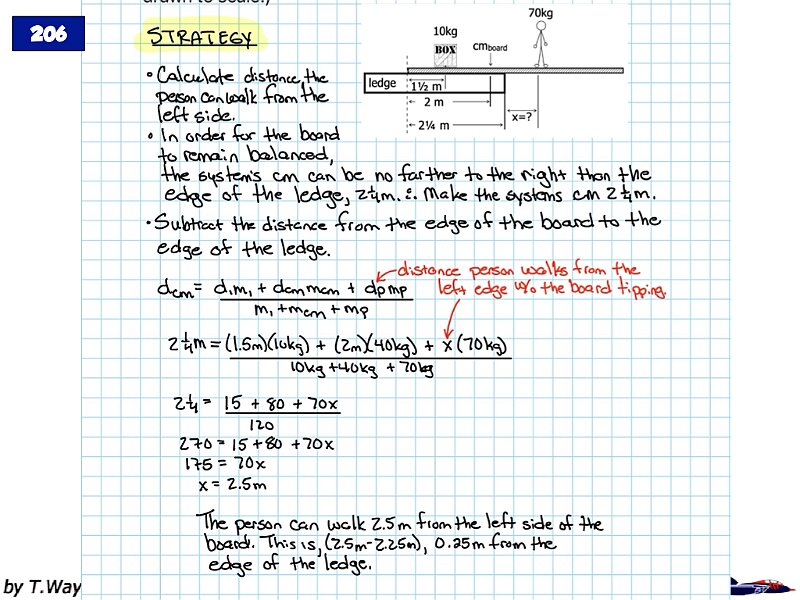 drawn to scale.)
206
STRATEGY
70kg
10kg
BOX
cmboard
ledge
1½ m
2 m
x=?
2¼ m
• Calculate distance the
person can walk from the
left side.
• In order for the board
to remain balanced,
the system's cm can be no farther to the right than the
edge of the ledge, 2¼m. ∴ Make the systems cm 2¼m.
• Subtract the distance from the edge of the board to the
edge of the ledge.
distance person walks from the
left edge w/o the board tipping.
dcm = d₁m₁ + dcm mcm + dpmp
m₁ + mcm + mp
2¼m = (1.5m)(10kg) + (2m)(40kg) + x(70kg)
10kg + 40kg + 70kg
2¼ = 15 + 80 + 70x
120
270 = 15 + 80 + 70x
175 = 70x
x = 2.5m
The person can walk 2.5m from the left side of the
board. This is, (2.5m-2.25m), 0.25m from the
edge of the ledge.
by T.Way